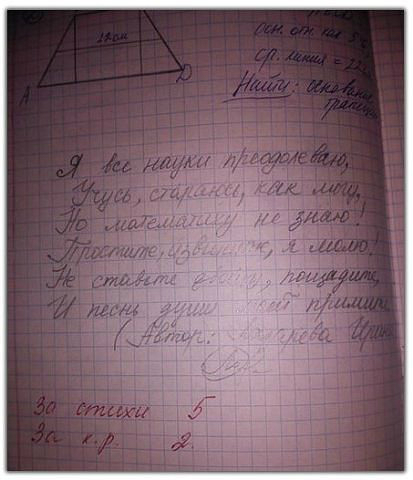 12 см
A
D
осн. отн. как 5:
ср. линия = 22см
Найти: основания
трапеции
Я все науки преодолеваю,
Учусь, стараюсь, как могу,
Но математику не знаю!
Простите, извините, я молю!
Не ставьте двойку, пощадите,
И песнь души моей примите
(Автор: Ирина
За стихи 5
За к.р. 2.